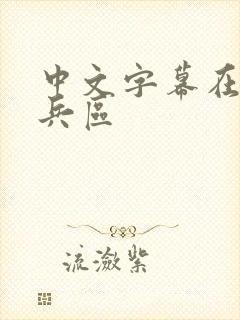 中文字幕在
兵區
流瀲紫